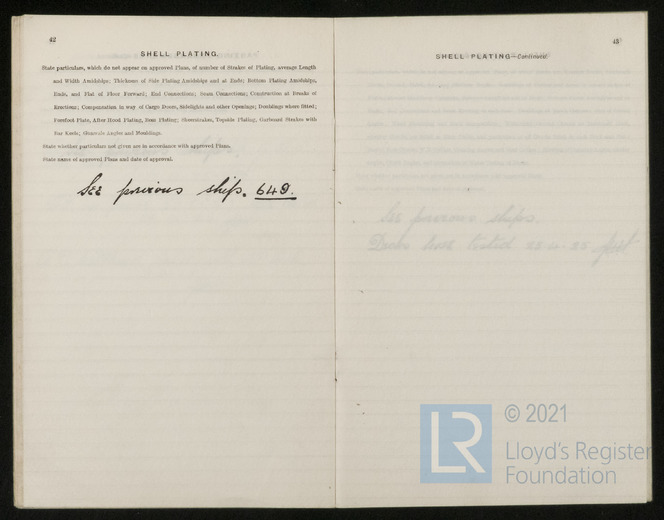 42
SHELL PLATING.
State particulars, which do not appear on approved Plans, of number of Strakes of Plating, average Length
and Width Amidships; Thickness of Side Plating Amidships and at Ends; Bottom Plating Amidships,
Ends, and Flat of Floor Forward; End Connections; Seam Connections; Construction at Breaks of
Erections; Compensation in way of Cargo Doors, Sidelights and other Openings; Doublings where fitted;
Forefoot Plate, After Hood Plating, Boss Plating; Sheerstrakes, Topside Plating, Garboard Strakes with
Bar Keels; Gunwale Angles and Mouldings.
State whether particulars not given are in accordance with approved Plans.
State name of approved Plans and date of approval.
See previous ship. 649.
43
SHELL PLATING—Continued.
See previous ships.
LR
© 2021
Lloyd's Register
Foundation